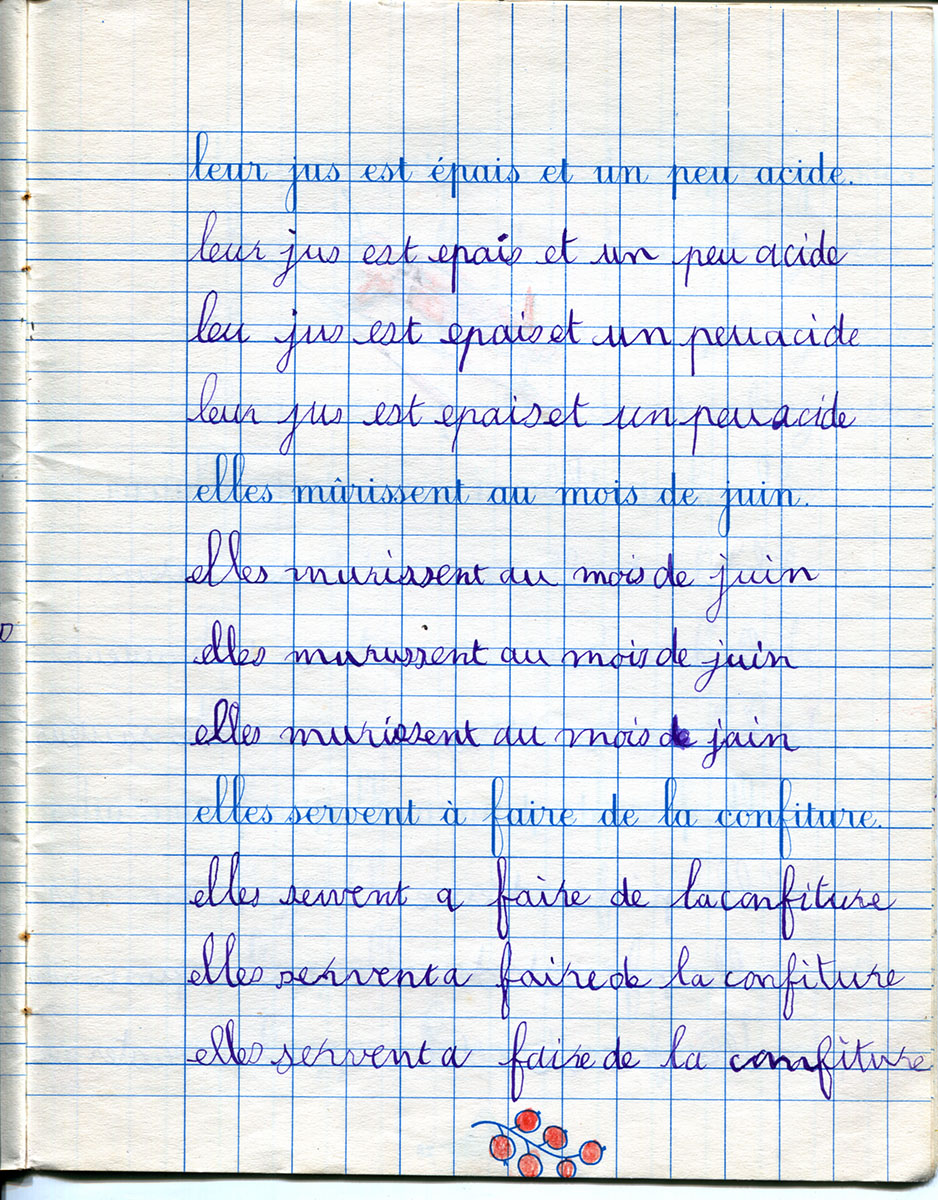 leur jus est épais et un peu acide.
leur jus est epais et un peu acide
leu jus est epais et un peu acide
leur jus est epais et un peu acide
elles mûrissent au mois de juin.
elles murissent au mois de juin
elles murissent au mois de juin
elles murissent au mois de juin
elles servent à faire de la confiture.
elles servent a faire de la confiture
elles servent a faire de la confiture
elles servent a faire de la confiture